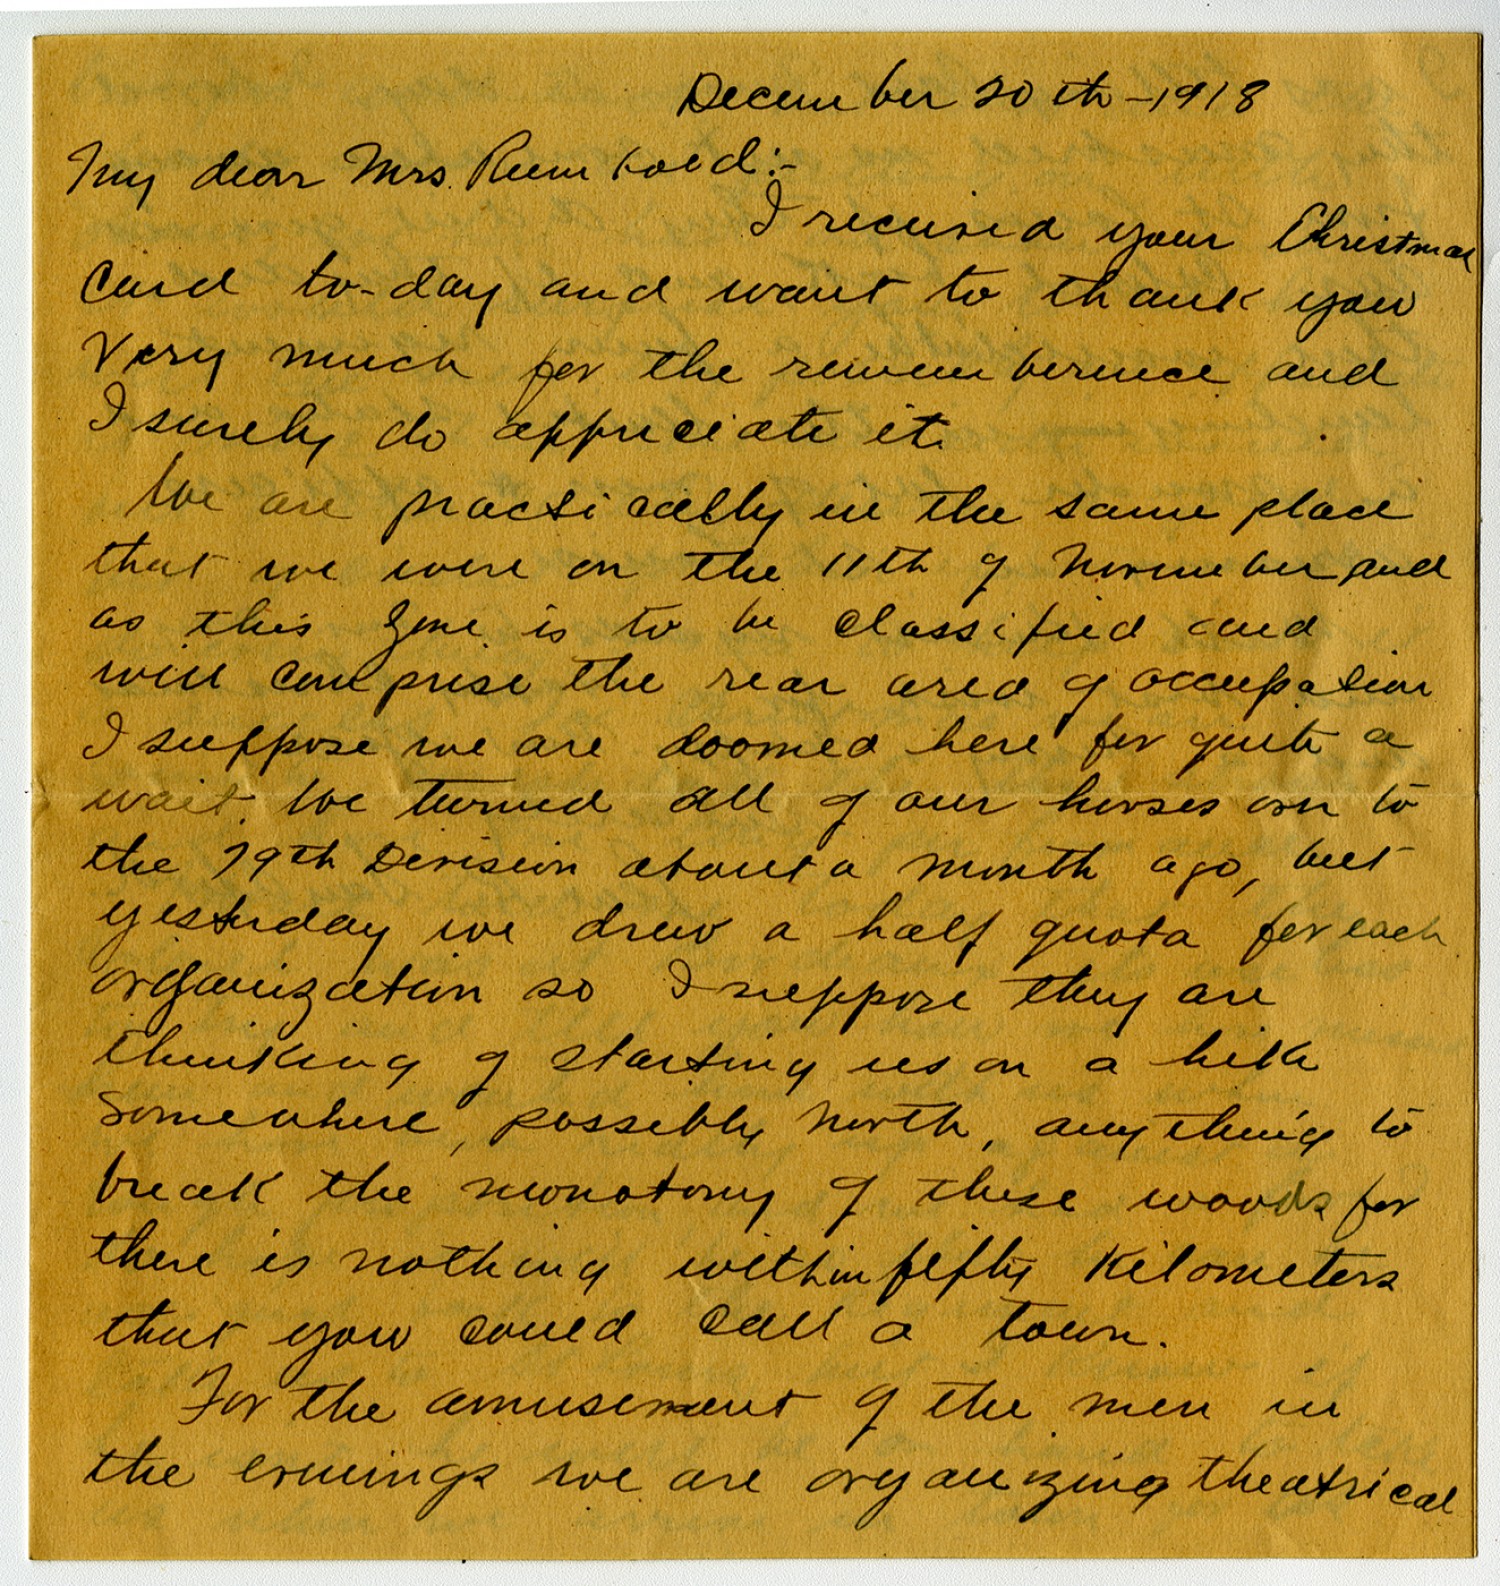 December 20th-1918
My dear Mrs. :-
I received your Christmas
card to-day and want to thank you
very much for the rememberence and
I surely do appreciate it.
We are practically in the same place
that we were on the 11th of November and
as this zone is to be classified and
will comprise the rear area of occupation
I suppose we are doomed here for quite a
wait. We turned all of our horses over to
the 79th Division about a month ago, but
yesterday we drew a half quota for each
organization so I suppose they are
thinking of starting us on a hike
somewhere, possibly north, anything to
break the monotony of these woods for
there is nothing within fifty Kilometers
that you could call a town.
For the amusement of the men in
the evenings we are organizing theatrical